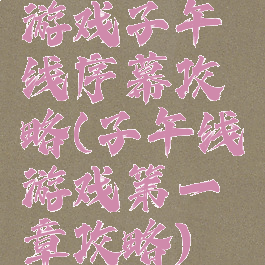 游戏子午
线序幕攻
略(子午线
游戏第一
章攻略)